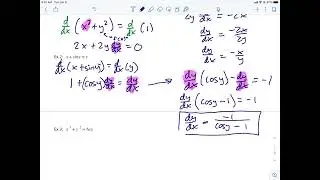 d/dx (x² + y²) = d/dx (1)
2x + 2y dy/dx = 0
Ex 2: x + sin y = y
d/dx (x + siny) = d/dx (y)
1 + (cosy) dy/dx = dy/dx
dy/dx = -2x/2y
dy/dx = -x/y
dy/dx (cosy) - dy/dx = -1
dy/dx (cosy - 1) = -1
dy/dx = -1/(cosy - 1)